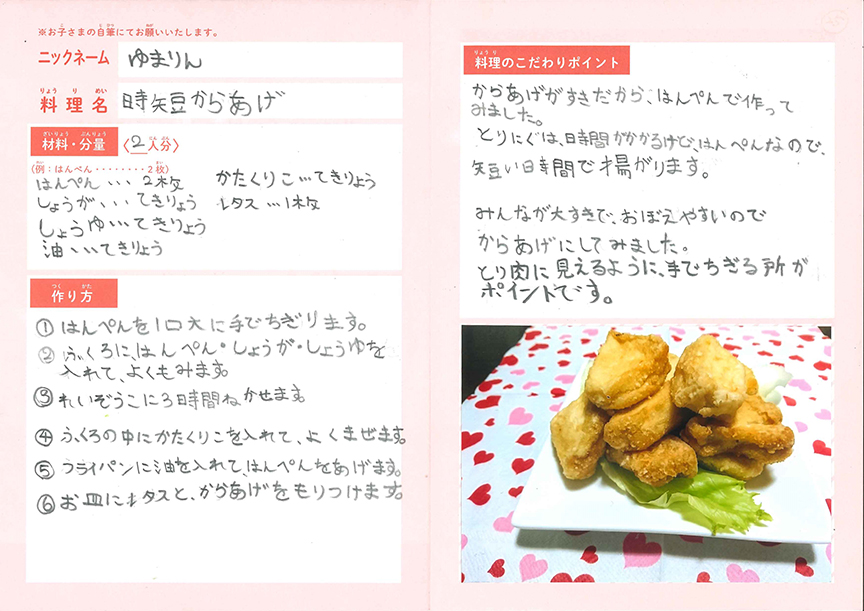 ※お子さまの自筆にてお願いいたします。
ニックネーム ゆまりん
料理名 時短からあげ
材料・分量 〈2人分〉
(例:はんぺん・・・・・・・・2枚)
はんぺん・・・2枚
しょうが・・・てきりょう
しょうゆ・・・てきりょう
油・・・てきりょう
かたくりこ・・・てきりょう
レタス・・・1枚
作り方
①はんぺんを1口大に手でちぎります。
②ふくろに、はんぺん・しょうが・しょうゆを
入れて、よくもみます。
③れいぞうこに3時間ねかせます
④ふくろの中にかたくりこを入れて、よくまぜます。
⑤フライパンに油を入れて、はんぺんをあげます。
⑥お皿にレタスと、からあげをもりつけます。
料理のこだわりポイント
からあげがすきだから、はんぺんで作って
みました。
とりにくは、時間がかかるけど、はんぺんなので、
短い時間で揚がります。
みんなが大すきで、おぼえやすいので
からあげにしてみました。
とり肉に見えるように、手でちぎる所が
ポイントです。